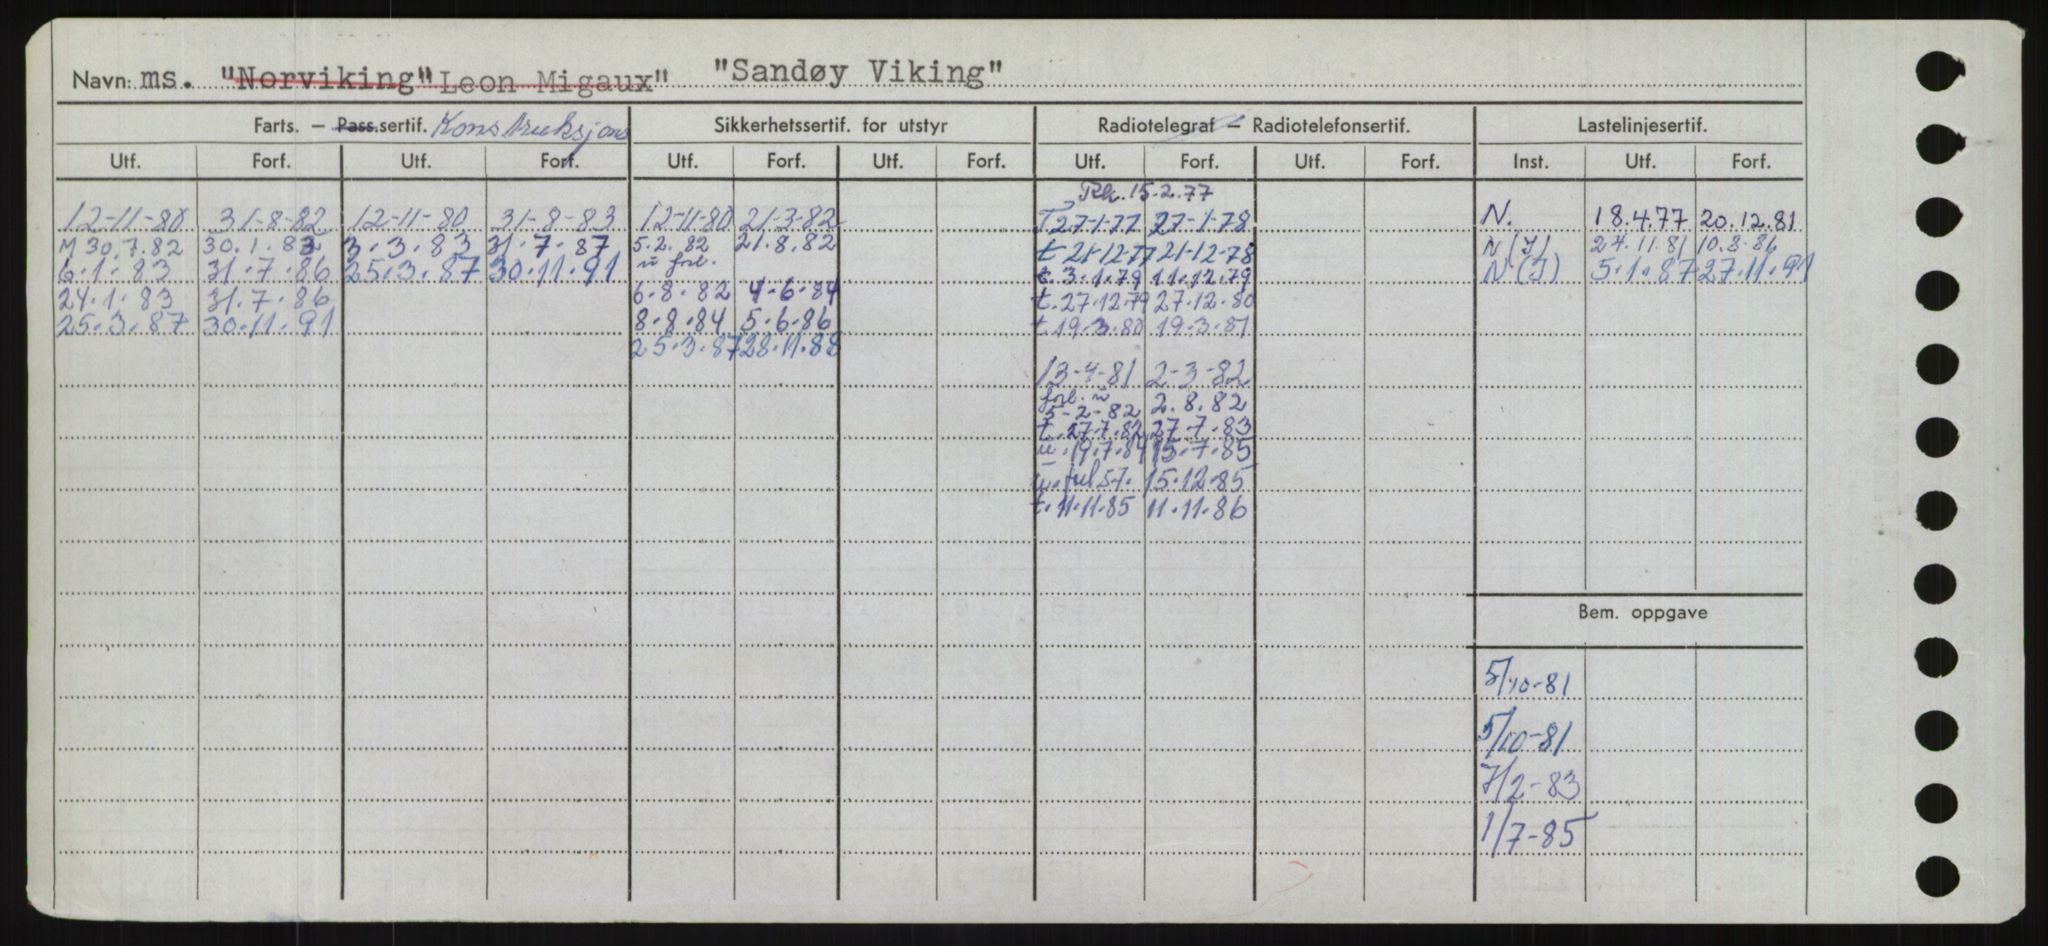 Navn: ms. "Norviking" Leon Migaux" "Sandøy Viking"
Farts. – Pass.sertif. Konstruksjons Sikkerhetssertif. for utstyr Radiotelegraf – Radiotelefonsertif. Lastelinjesertif.
Utf. Forf. Utf. Forf. Utf. Forf. Utf. Forf. Utf. Forf. Utf. Forf. Inst. Utf. Forf.
15.2.77
12-11-80 31-8-82 12-11-80 31-8-83 12-11-80 21-3-82 T 27-1-77 27-1-78 N. 18.4.77 20.12.81
M 30.7.82 30.1.83 3.3.83 31.7.87 5.2.82 21.8.82 t 21-12-77 21-12-78 N(J) 24.11.81 10.8.86
u forl.
6.1.83 31.7.86 25.3.87 30.11.91 t. 3.1.79 11.12.79 N(J) 5.1.87 27.11.91
24.1.83 31.7.86 6.8.82 4.6.84 t. 27.12.79 27.12.80
25.3.87 30.11.91 8.8.84 5.6.86 t. 19.3.80 19.3.81
25.3.87 28.11.88
13-4-81 2-3-82
forl. u
5-2-82 2.8.82
t. 27.7.82 27.7.83
u. 19.7.84 15.7.85
15.12.85
t. 11.11.85 11.11.86
Bem. oppgave
5/10-81
5/10-81
7/2-83
1/7-85